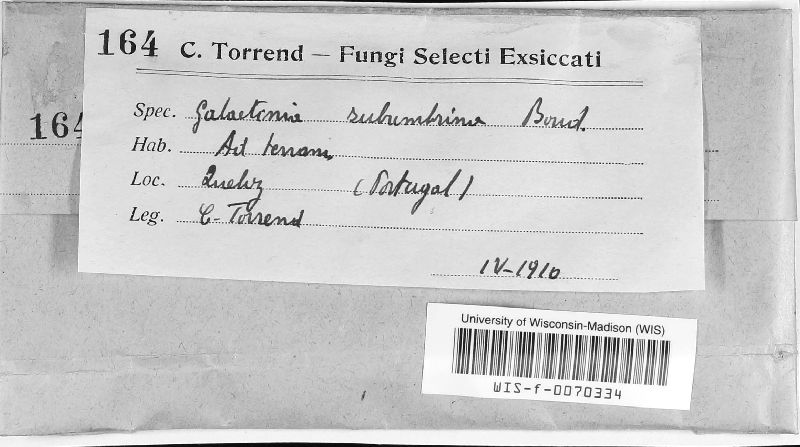 164 C. Torrend — Fungi Selecti Exsiccati
164
Spec. Galactinia subumbrina Boud.
Hab. Ad terram
Loc. Queluz (Portugal)
Leg. C. Torrend
IV-1910
University of Wisconsin-Madison (WIS)
WIS-f-0070334